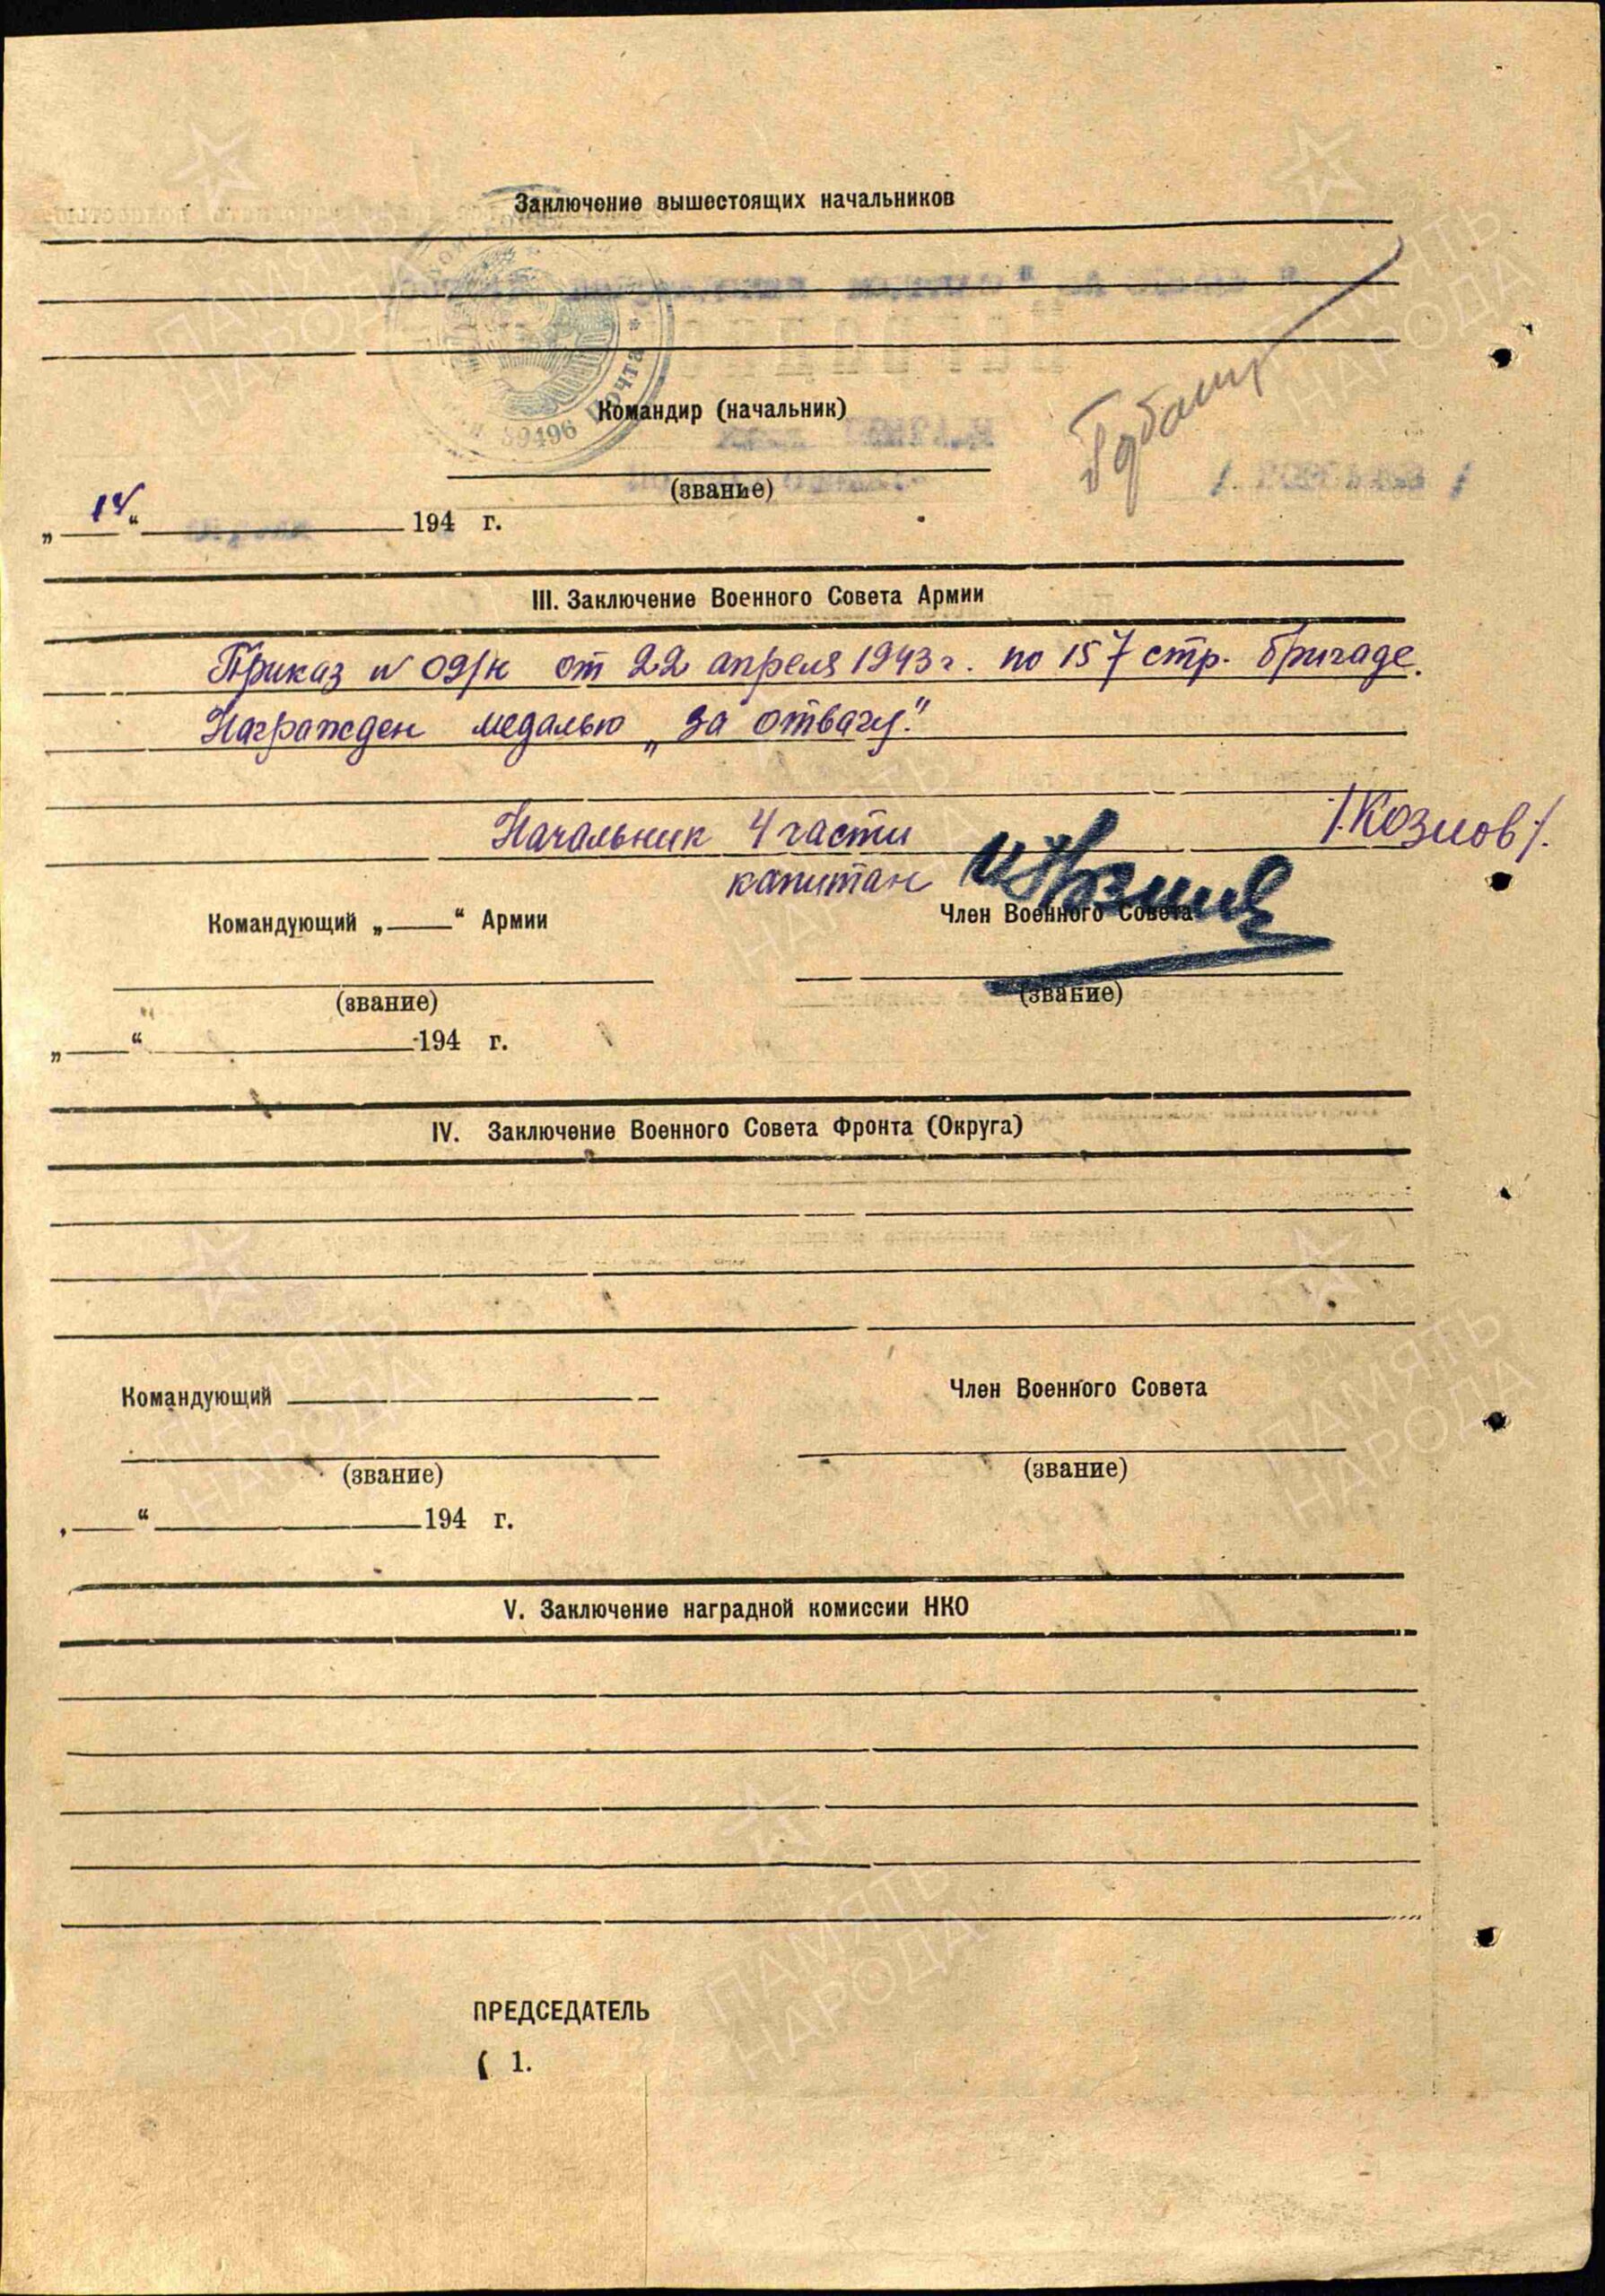 Заключение вышестоящих начальников
39496 Почта
Командир (начальник)
(звание)
„14“ 194 г.
III. Заключение Военного Совета Армии
Приказ N 09/н от 22 апреля 1943 г. по 157 стр. бригаде.
Награжден медалью „За отвагу".
Начальник 4 части /Козлов/.
капитан
Командующий „ “ Армии Член Военного Совета
(звание) (звание)
„ “ 194 г.
IV. Заключение Военного Совета Фронта (Округа)
Командующий Член Военного Совета
(звание) (звание)
„ “ 194 г.
V. Заключение наградной комиссии НКО
ПРЕДСЕДАТЕЛЬ
( 1.
ПАМЯТЬ НАРОДА